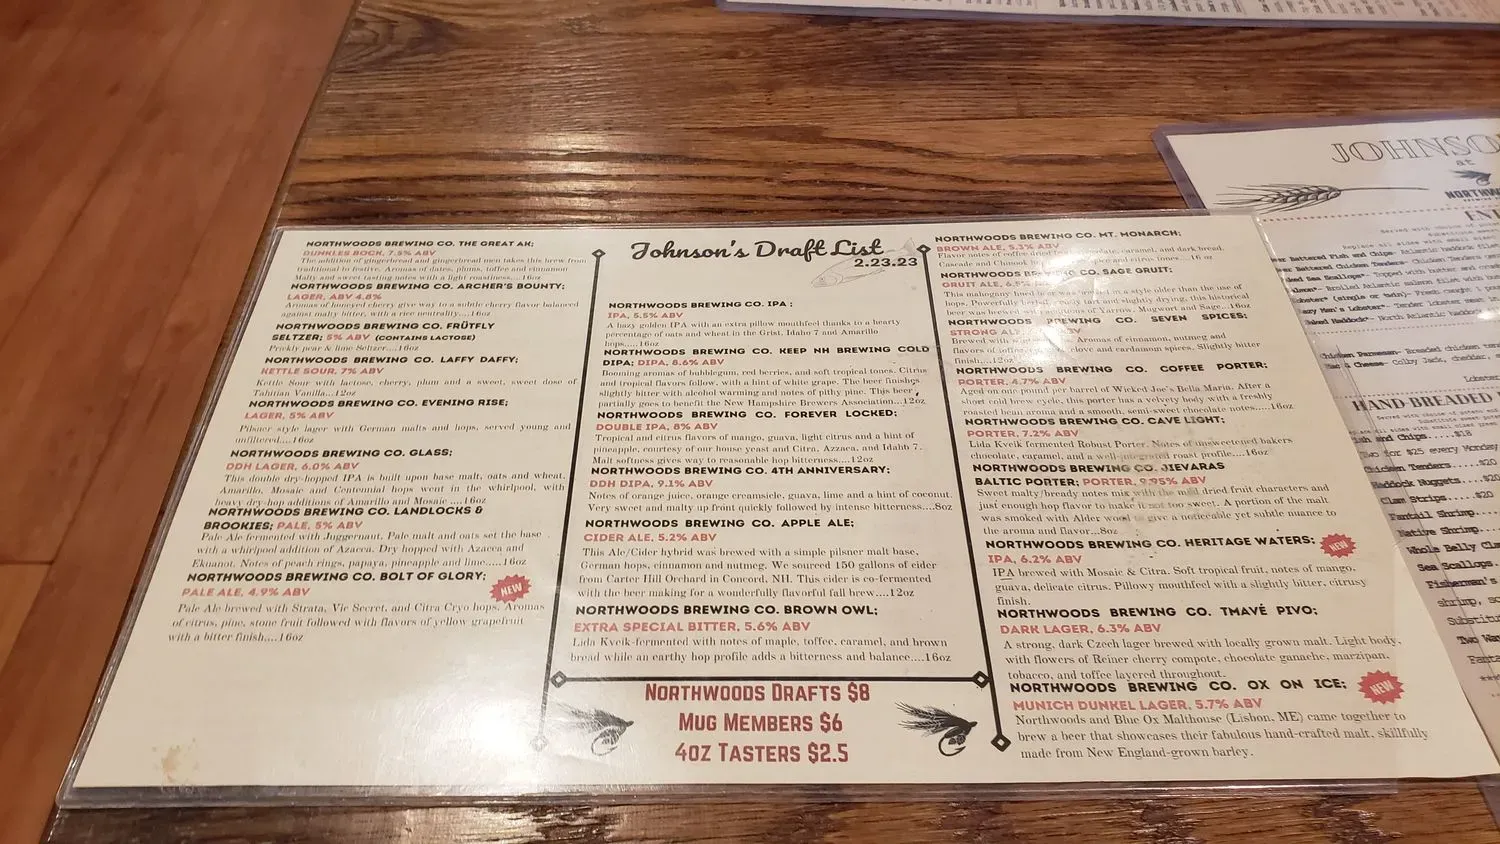 NORTHWOODS BREWING CO. THE GREAT AK;
DUNKLES BOCK, 7.5% ABV
The addition of gingerbread and gingerbread men takes this brew from
traditional to festive. Aromas of dates, plums, toffee and cinnamon
Malty and sweet tasting notes with a light roastiness....16oz
NORTHWOODS BREWING CO. ARCHER'S BOUNTY;
LAGER, ABV 4.8%
Aromas of honeyed cherry give way to a subtle cherry flavor balanced
against malty bitter, with a rice neutrality....16oz
NORTHWOODS BREWING CO. FRÜTFLY
SELTZER; 5% ABV (CONTAINS LACTOSE)
Prickly pear & lime Seltzer...16oz
NORTHWOODS BREWING CO. LAFFY DAFFY;
KETTLE SOUR, 7% ABV
Kettle Sour with lactose, cherry, plum and a sweet, sweet dose of
Tahitian Vanilla...12oz
NORTHWOODS BREWING CO. EVENING RISE;
LAGER, 5% ABV
Pilsner style lager with German malts and hops, served young and
unfiltered....16oz
NORTHWOODS BREWING CO. GLASS;
DDH LAGER, 6.0% ABV
This double dry-hopped IPA is built upon base malt, oats and wheat.
Amarillo, Mosaic and Centennial hops went in the whirlpool, with
heavy dry-hop additions of Amarillo and Mosaic ....16oz
NORTHWOODS BREWING CO. LANDLOCKS &
BROOKIES; PALE, 5% ABV
Pale Ale fermented with Juggernaut. Pale malt and oats set the base
with a whirlpool addition of Azacca. Dry hopped with Azacca and
Ekuanot. Notes of peach rings, papaya, pineapple and lime.....16oz
NORTHWOODS BREWING CO. BOLT OF GLORY;
PALE ALE, 4.9% ABV
NEW
Pale Ale brewed with Strata, Vic Secret, and Citra Cryo hops. Aromas
of citrus, pine, stone fruit followed with flavors of yellow grapefruit
with a bitter finish....16oz
Johnson's Draft List
2.23.23
NORTHWOODS BREWING CO. IPA ;
IPA, 5.5% ABV
A hazy golden IPA with an extra pillow mouthfeel thanks to a hearty
percentage of oats and wheat in the Grist. Idaho 7 and Amarillo
hops.....16oz
NORTHWOODS BREWING CO. KEEP NH BREWING COLD
DIPA; DIPA, 8.6% ABV
Booming aromas of bubblegum, red berries, and soft tropical tones. Citrus
and tropical flavors follow, with a hint of white grape. The beer finishes
slightly bitter with alcohol warming and notes of pithy pine. This beer
partially goes to benefit the New Hampshire Brewers Association...12oz
NORTHWOODS BREWING CO. FOREVER LOCKED;
DOUBLE IPA, 8% ABV
Tropical and citrus flavors of mango, guava, light citrus and a hint of
pineapple, courtesy of our house yeast and Citra, Azzaca, and Idahb 7.
Malt softness gives way to reasonable hop bitterness....12oz
NORTHWOODS BREWING CO. 4TH ANNIVERSARY;
DDH DIPA, 9.1% ABV
Notes of orange juice, orange creamsicle, guava, lime and a hint of coconut.
Very sweet and malty up front quickly followed by intense bitterness....8oz
NORTHWOODS BREWING CO. APPLE ALE;
CIDER ALE, 5.2% ABV
This Ale/Cider hybrid was brewed with a simple pilsner malt base,
German hops, cinnamon and nutmeg. We sourced 150 gallons of cider
from Carter Hill Orchard in Concord, NH. This cider is co-fermented
with the beer making for a wonderfully flavorful fall brew....12oz
NORTHWOODS BREWING CO. BROWN OWL;
EXTRA SPECIAL BITTER, 5.6% ABV
Lida Kveik-fermented with notes of maple, toffee, caramel, and brown
bread while an earthy hop profile adds a bitterness and balance....16oz
NORTHWOODS DRAFTS $8
MUG MEMBERS $6
4OZ TASTERS $2.5
NORTHWOODS BREWING CO. MT. MONARCH;
BROWN ALE, 5.3% ABV
Flavor notes of coffee caramel, and dark bread.
Cascade and Chinook and citrus tones....16 oz
NORTHWOODS CO. SAGE GRUIT;
GRUIT ALE,
This mahogany in a style older than the use of
hops. Powerfully tart and slightly drying, this historical
beer was of Yarrow, Mugwort and Sage...16oz
NORTHWOODS BREWING CO. SEVEN SPICES;
STRONG
Brewed with Aromas of cinnamon, nutmeg and
flavors of clove and cardamom spices. Slightly bitter
finish....12oz
NORTHWOODS BREWING CO. COFFEE PORTER;
PORTER, 4.7% ABV
Aged on one pound per barrel of Wicked Joe's Bella Maria. After a
short cold brew cycle, this porter has a velvety body with a freshly
roasted bean aroma and a smooth, semi-sweet chocolate notes.....16oz
NORTHWOODS BREWING CO. CAVE LIGHT;
PORTER, 7.2% ABV
Lida Kveik fermented Robust Porter. Notes of unsweetened bakers
chocolate, caramel, and a well-integrated roast profile....16oz
NORTHWOODS BREWING CO. JIEVARAS
BALTIC PORTER; PORTER, 9.95% ABV
Sweet malty/bready notes mix with the mild dried fruit characters and
just enough hop flavor to make it not too sweet. A portion of the malt
was smoked with Alder wood to give a noticeable yet subtle nuance to
the aroma and flavor...8oz
NORTHWOODS BREWING CO. HERITAGE WATERS;
NEW
IPA, 6.2% ABV
IPA brewed with Mosaic & Citra. Soft tropical fruit, notes of mango,
guava, delicate citrus. Pillowy mouthfeel with a slightly bitter, citrusy
finish.
NORTHWOODS BREWING CO. TMAVÉ PIVO;
DARK LAGER, 6.3% ABV
A strong, dark Czech lager brewed with locally grown malt. Light body,
with flowers of Reiner cherry compote, chocolate ganache, marzipan,
tobacco, and toffee layered throughout.
NORTHWOODS BREWING CO. OX ON ICE;
NEW
MUNICH DUNKEL LAGER, 5.7% ABV
Northwoods and Blue Ox Malthouse (Lisbon, ME) came together to
brew a beer that showcases their fabulous hand-crafted malt, skillfully
made from New England-grown barley.
JOHNSO
at
NORTHW
HAND-BREADED
Fish and Chips.....$18
Two for $25 every Monday
Chicken Tenders.....$20
Haddock Nuggets....$20
Clam Strips.....$20
Fantail Shrimp
Native Shrimp
Whole Belly Cla
Sea Scallops
Fisherman's
shrimp, sc
Substitut
Two Wa
Fanta